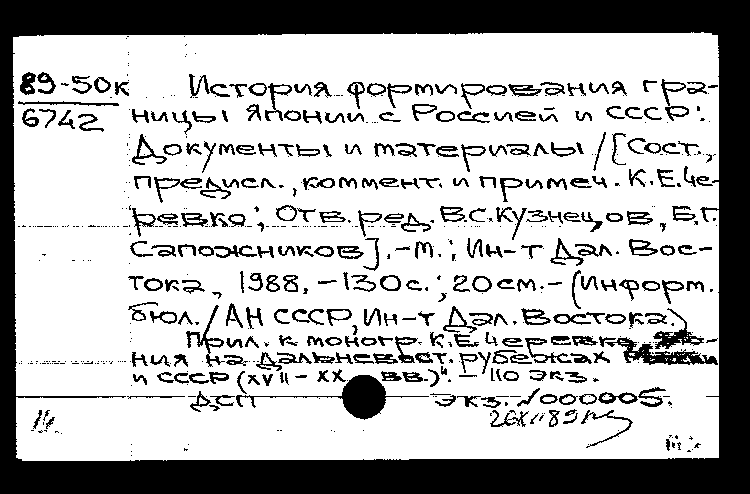 89-50к
6742
История формирования гра-
ницы Японии с Россией и СССР:
Документы и материалы / [Сост.,
предисл., коммент. и примеч. К.Е.Че-
ревко; Отв. ред. В.С.Кузнецов, Б.Г.
Сапожников]. - М.: Ин-т Дал. Вос-
тока, 1988. - 130 с.; 20 см. - (Информ.
бюл. / АН СССР, Ин-т Дал. Востока.)
Прил. к моногр. К.Е.Черевко
ния на дальневост. рубежах
и СССР (XVII - XX вв.)". - 110 экз.
ДСП Экз. №000005.